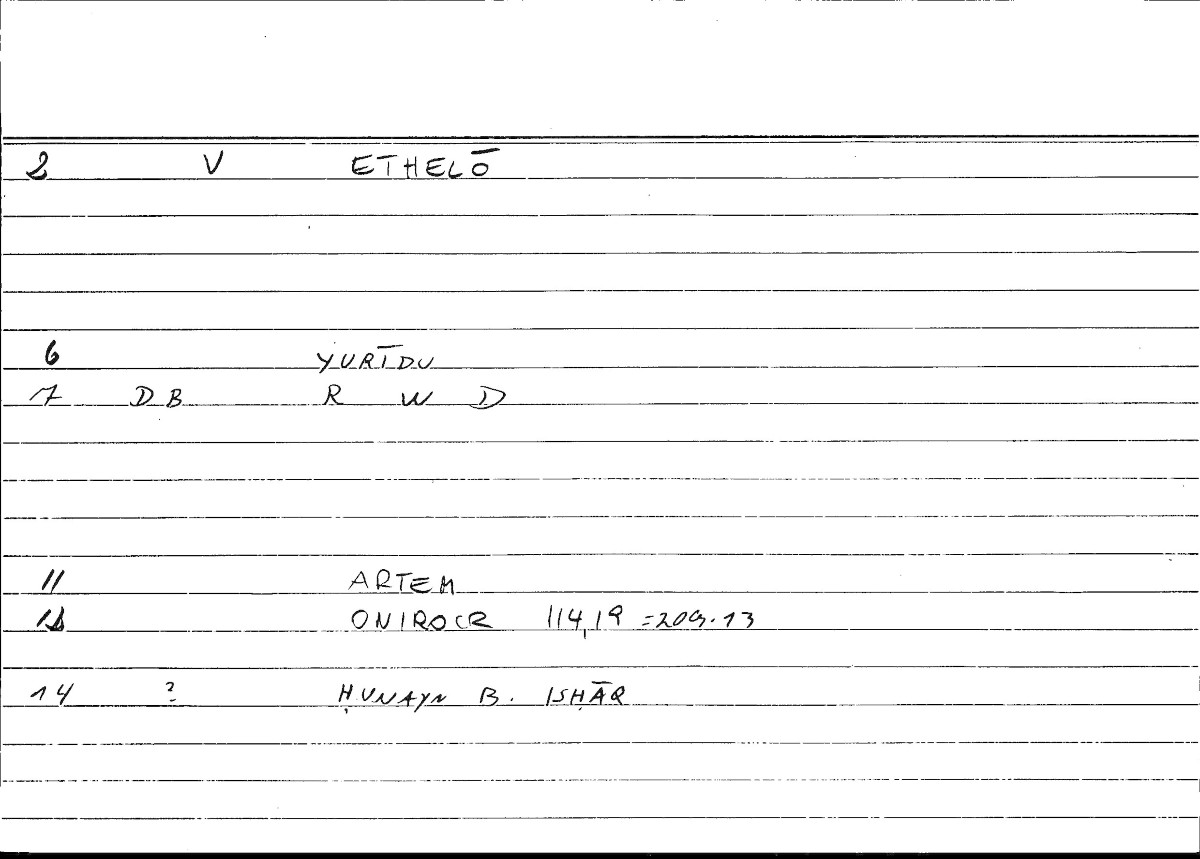 2 V ETHELŌ
6 YURĪDU
7 DB R W D
11 ARTEM
12 ONIROCR 114,19 =209.13
14 ? ḤUNAYN B. ISḤĀQ